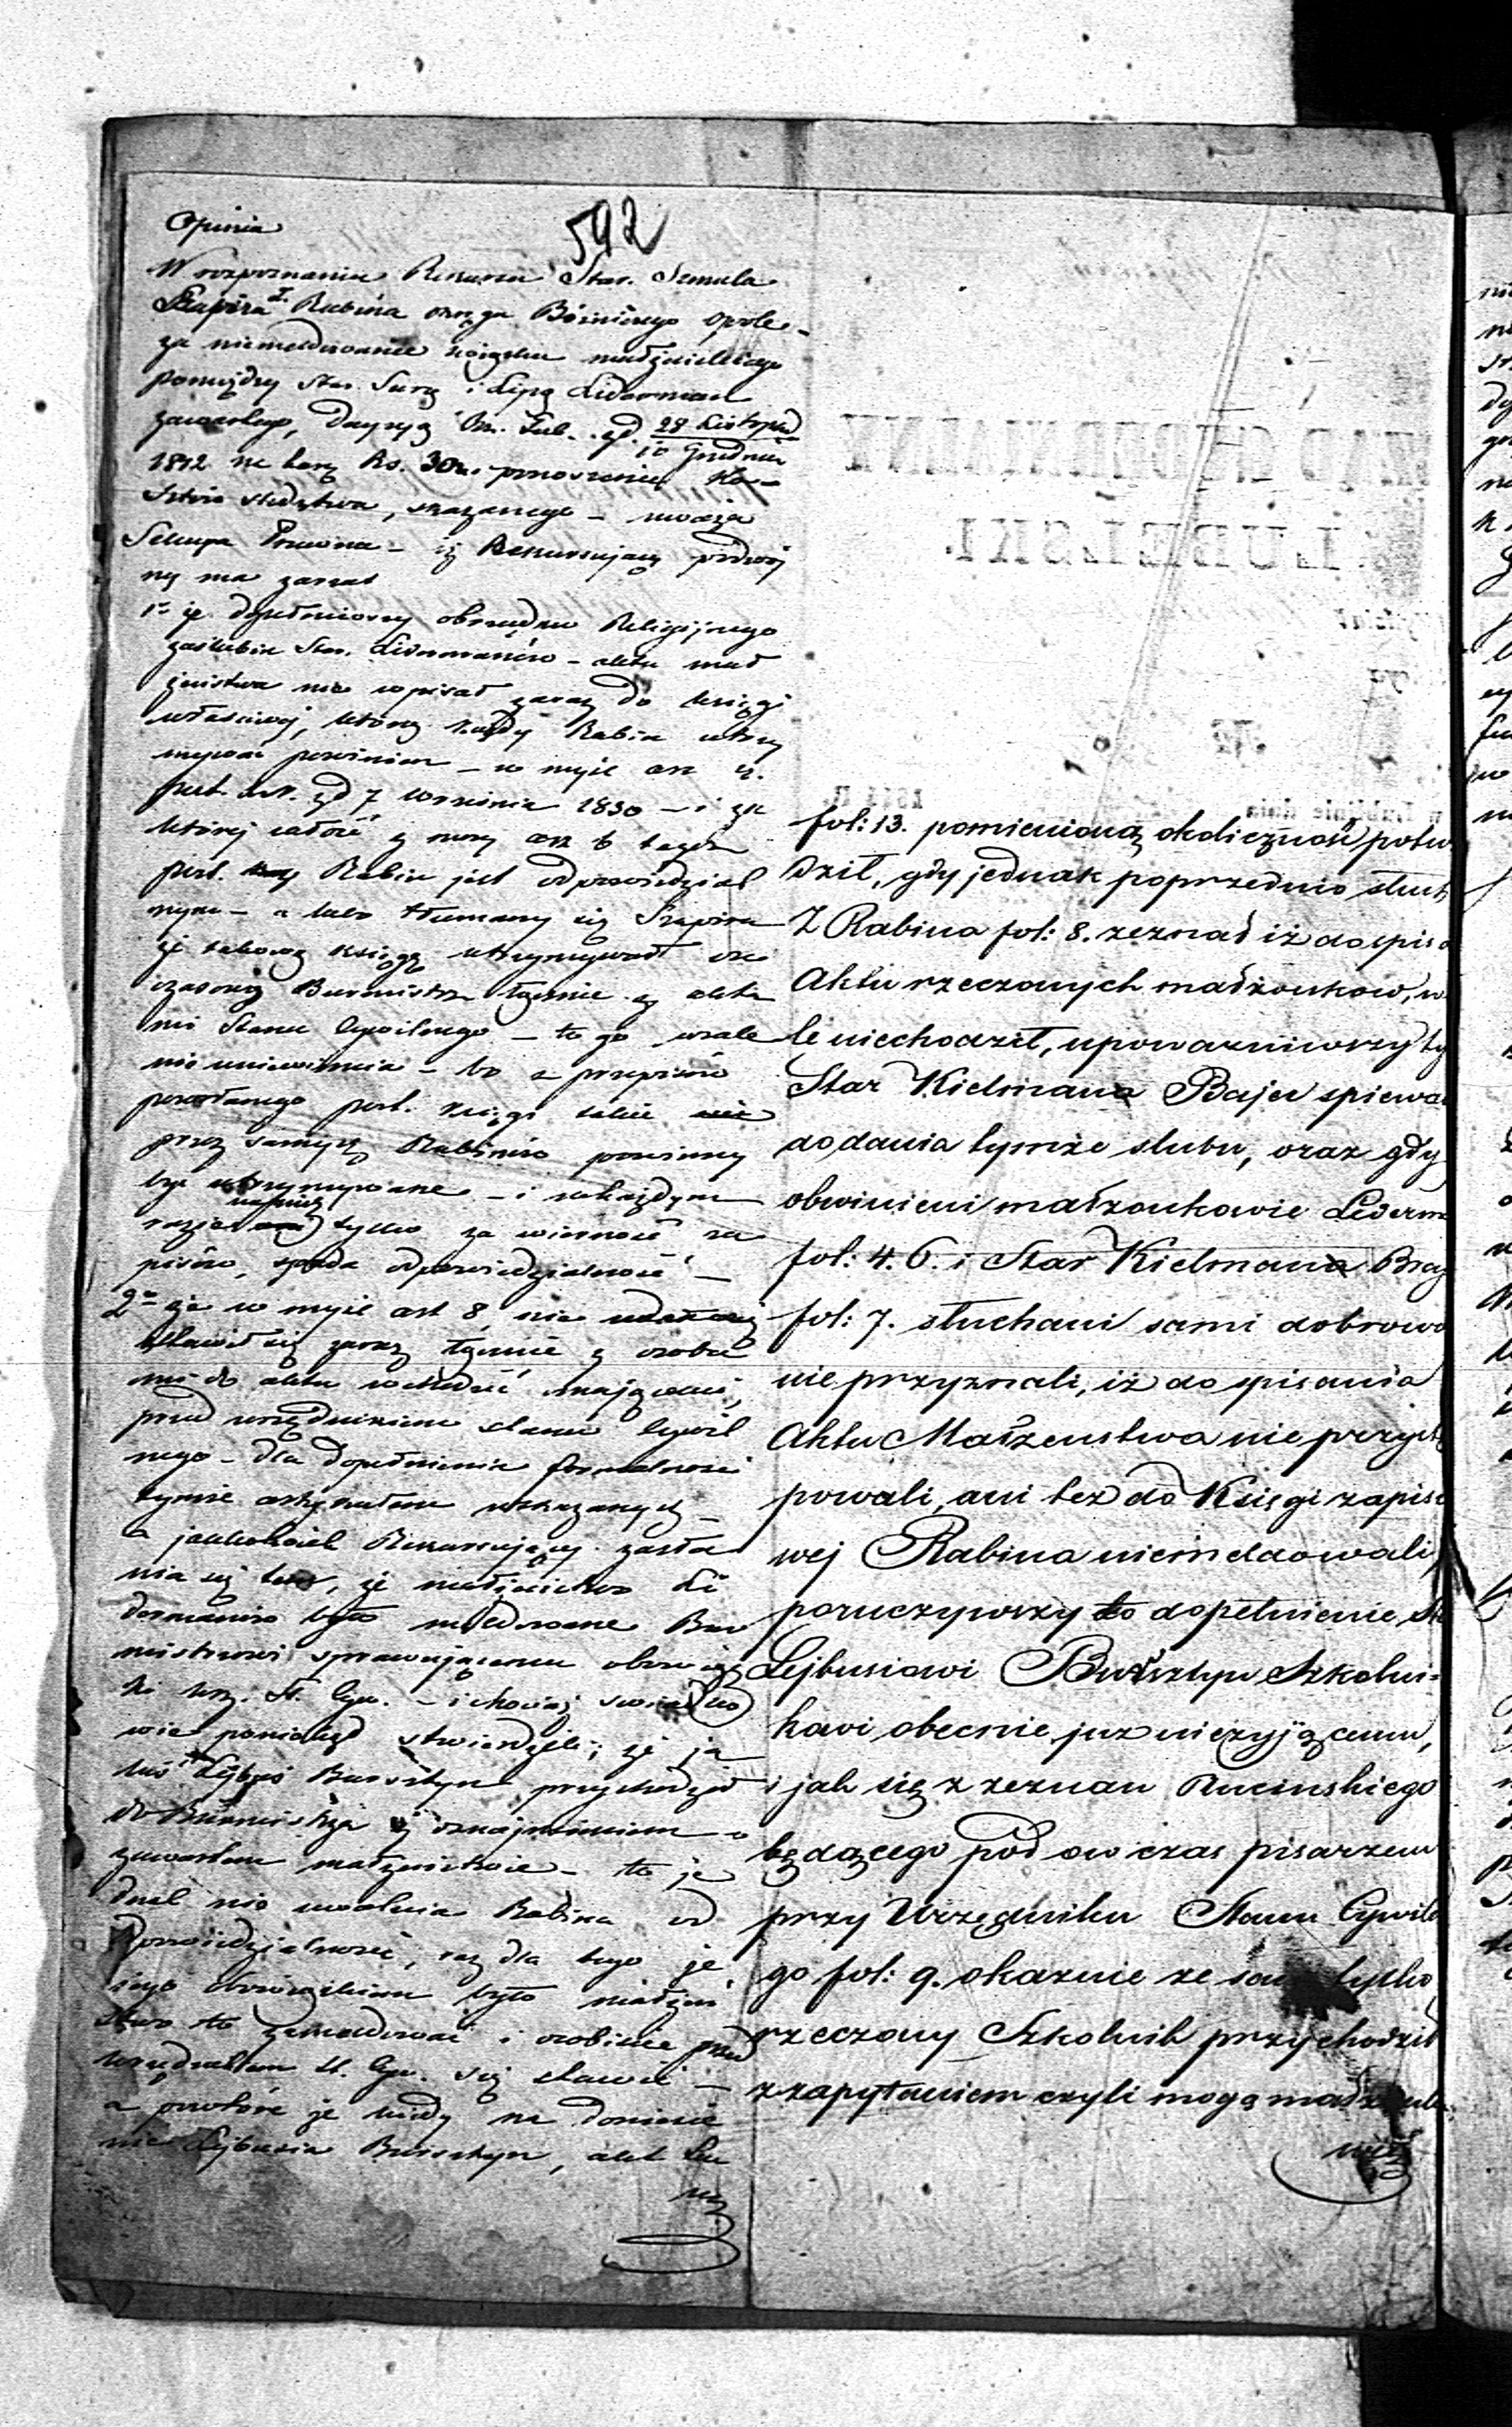 592
Opinia
W rozpoznaniu Rekursu Star. Szmula
Szapira Rabina okręgu Bóżniczego Opole
za niemeldowanie związku małżeńskiego
pomiędzy Star. Surą i Lipą Liderman
zawartego, Decyzją Rz. Gub. z d. 28 Listopad
10 Grudnia
1842 na karę Rs. 30 i ponoszenie Ko-
sztów śledztwa, skazanego - uważa
Sekcya Prawna - iż Rekursujący podwój
ny ma zarzut
1o że dopełniwszy obrzędu Religijnego
zaślubin Star. Lidermanów - aktu mał
żeństwa nie wpisał zaraz do księgi
właściwej, którą każdy Rabin utrzy
mywać powinien - w myśl art
post. z d 7 Września 1830 - i za
której całość z mocy art 6 tegoż
post. Rabin jest odpowiedzial
nym - a lubo tłumaczy się Szapira
że takową księgę utrzymywał
czasowy Burmistrz łącznie z akta
mi Stanu Cywilnego - to go wcale
nie uniewinnia - bo z przepisów
powołanego post. księgi takie
przez samych Rabinów powinny
być utrzymywane - i w każdym
razie tylko za wierność za
pisów, spada odpowiedzialność -
2o że w myśl art 8, nie
stawił się zaraz łącznie z osoba
mi do aktu wchodzić mającemi,
przed urzędnikiem stanu Cywil
nego - dla dopełnienia formalności
tymże artykułem wskazanych -
a jakkolwiek Rekursujący zasła
nia się tem, że małżeństwo Li
dermanów było meldowane Bur
mistrzowi sprawującemu obowiąz
ki Urz. St. Cyw. - i chociaż świadko
wie poniekąd stwierdzili, że ja
kiś Lejbuś Bursztyn przychodził
do Burmistrza z oznajmieniem o
zawartem małżeństwie - to je
dnak nie uwalnia Rabina od
odpowiedzialności, raz dla tego że
jego obowiązkiem było małżeń
stwo to zameldować i osobiście przed
urzędnikiem St. Cyw. się stawić -
a powtóre że kiedy na doniesie
nie Lejbusia Bursztyn, akt
fol: 13. pomienioną okoliczność potw
dził, gdy jednak poprzednio słuch
Z Rabina fol: 8. zeznał iż do spisa
Aktu rzeczonych małżonkow, w
le niechodził, upoważniwszy ty
Star Kielmana Bajer spiewa
do dania tymże slubu, oraz gdy
obwinieni małżonkowie Liderm
fol: 4. 6. i Star Kielmana
fol: 7. słuchani sami dobrowo
nie przyznali, iż do spisania
Aktu Małżeństwa nie przyst
powali, ani też do Księgi zapiso
wej Rabina niemeldowali,
poruczywszy to dopełnienie St
Lejbusiowi Bursztyn Szkolni-
kowi obecnie juz nieżyjącemu,
i jak się z zeznań Rucinskiego
będącego pod ow czas pisarzem
przy Urzędniku Stanu Cywiln
go fol: 9. okazuie ze tylko
rzeczony Szkolnik przychodził
z zapytaniem czyli mogą